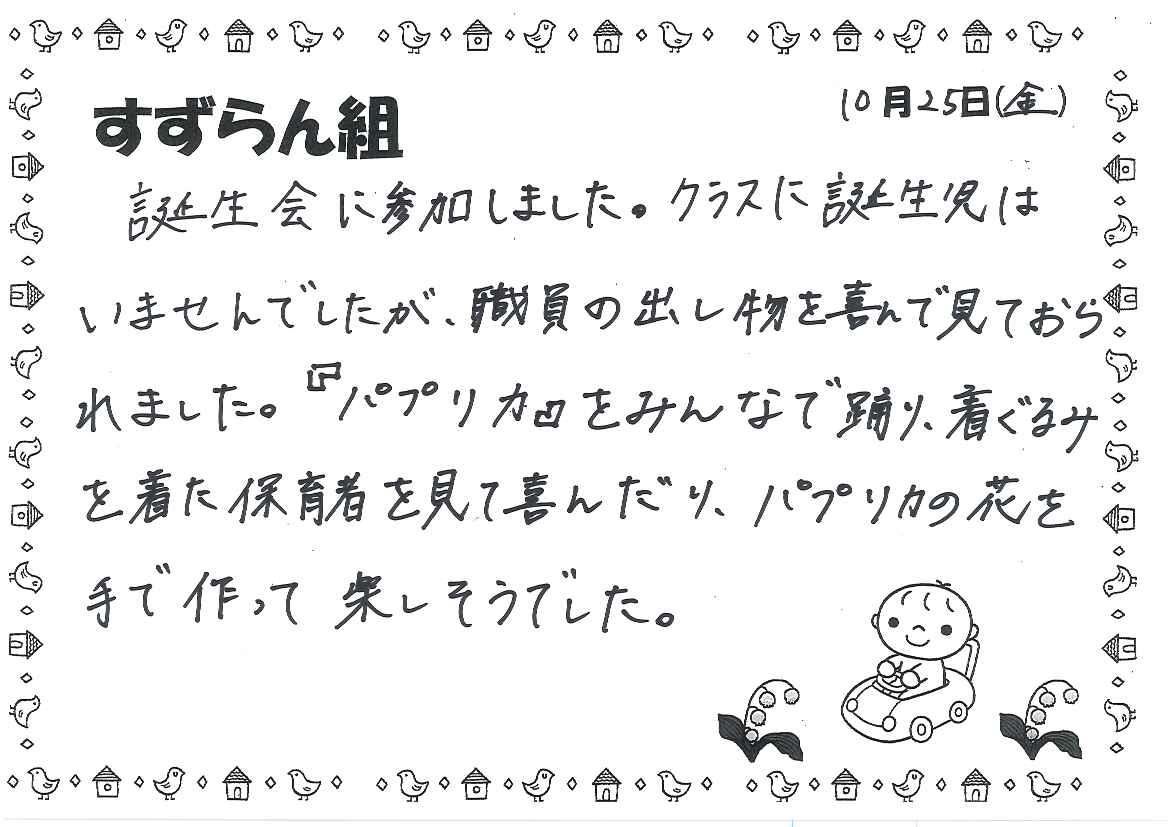 すずらん組
10月25日(金)
誕生会に参加しました。クラスに誕生児は
いませんでしたが、職員の出し物を喜んで見ておら
れました。『パプリカ』をみんなで踊り、着ぐるみ
を着た保育者を見て喜んだり、パプリカの花を
手で作って楽しそうでした。